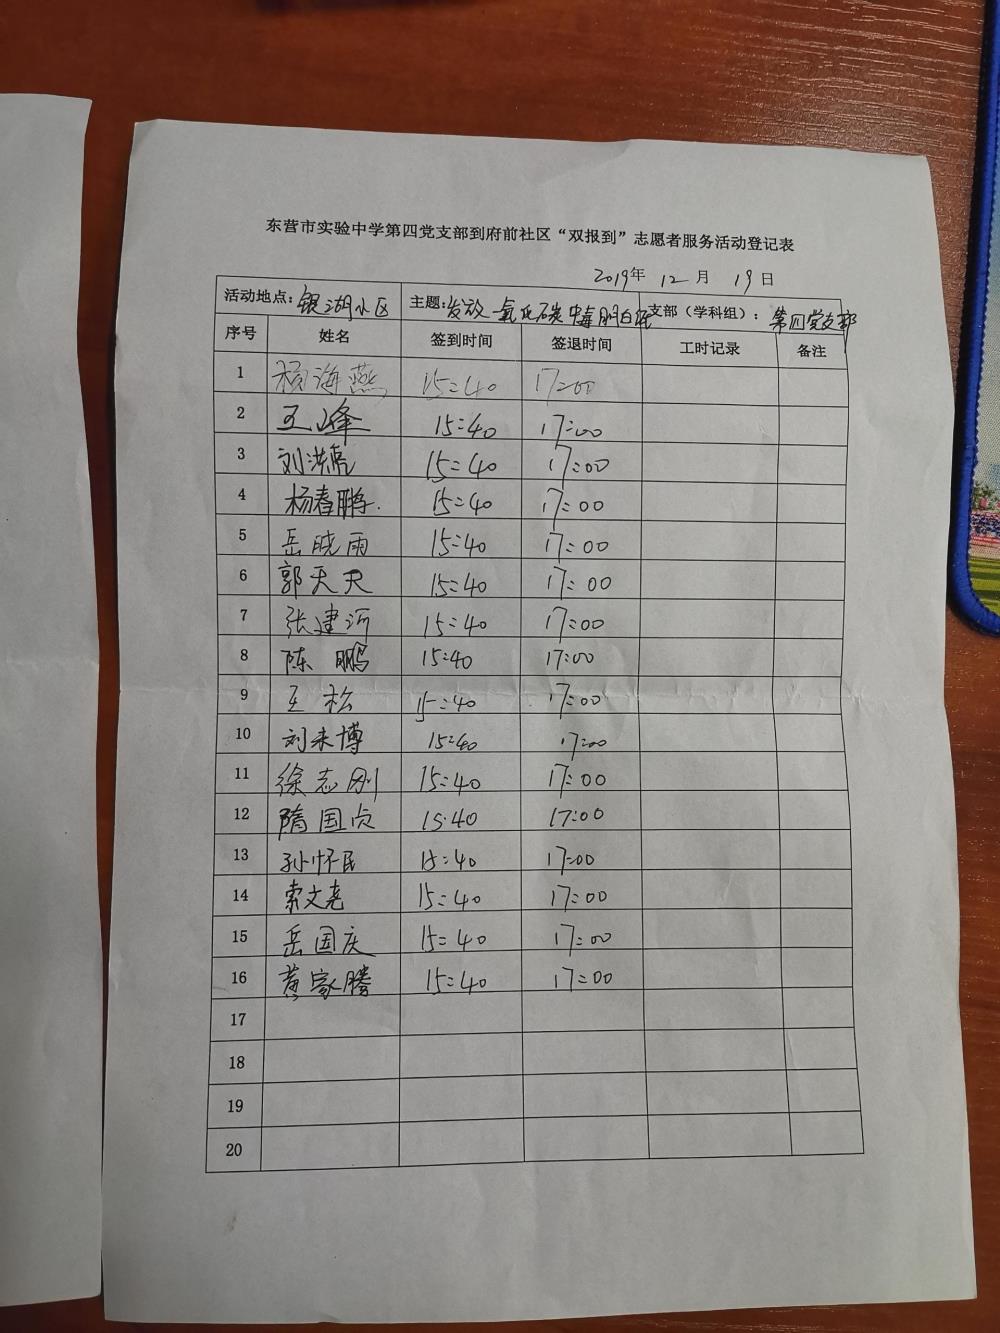 东营市实验中学第四党支部到府前社区“双报到”志愿者服务活动登记表
2019年 12月 19日
活动地点：银湖小区 主题：发放一氧化碳中毒明白纸 支部（学科组）：第四党支部
序号 姓名 签到时间 签退时间 工时记录 备注
1 杨海燕 15:40 17:00
2 王峰 15:40 17:00
3 刘洪亮 15:40 17:00
4 杨春鹏. 15:40 17:00
5 岳晓雨 15:40 17:00
6 郭天天 15:40 17:00
7 张建河 15:40 17:00
8 陈鹏 15:40 17:00
9 王松 15:40 17:00
10 刘来博 15:40 17:00
11 徐志刚 15:40 17:00
12 隋国贞 15:40 17:00
13 孙怀民 15:40 17:00
14 索文尧 15:40 17:00
15 岳国庆 15:40 17:00
16 黄家腾 15:40 17:00
17
18
19
20